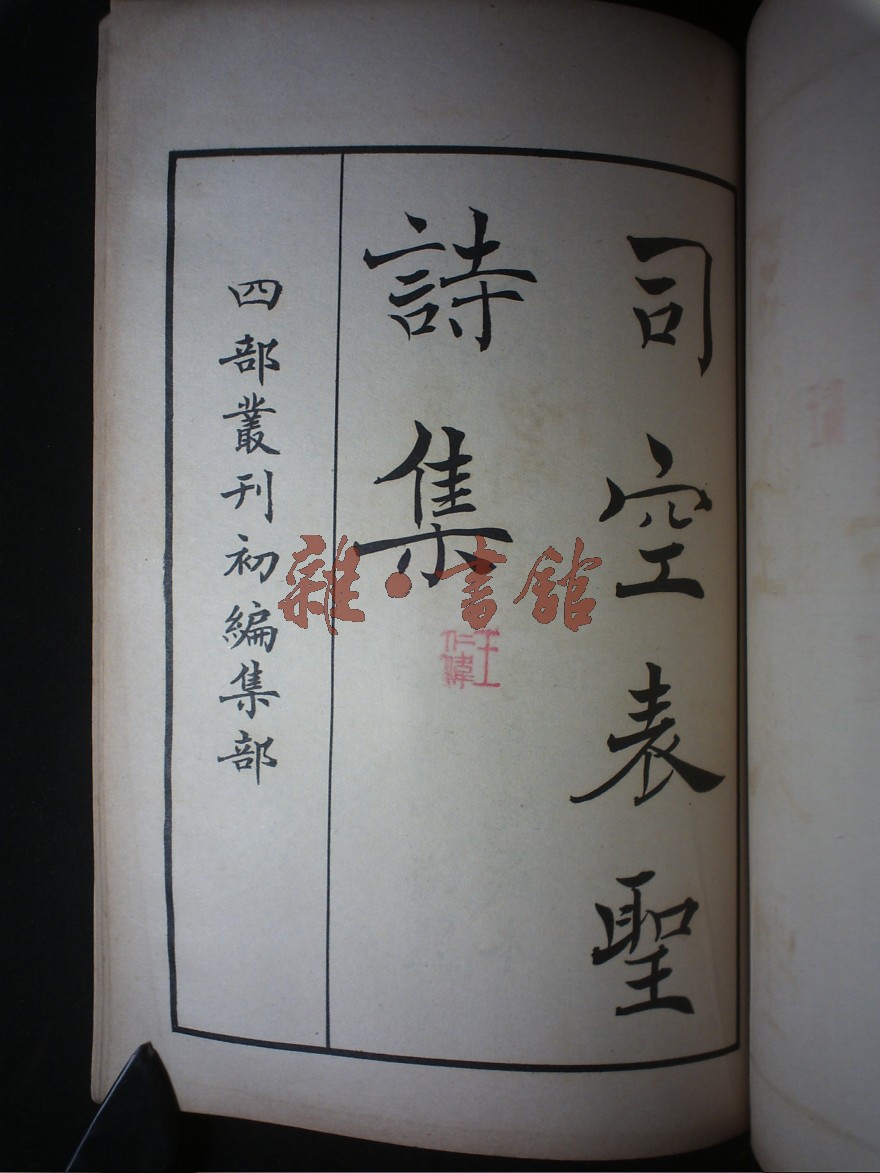 司空表聖
詩集
四部叢刊初編集部
雜·書館
王
仁偉